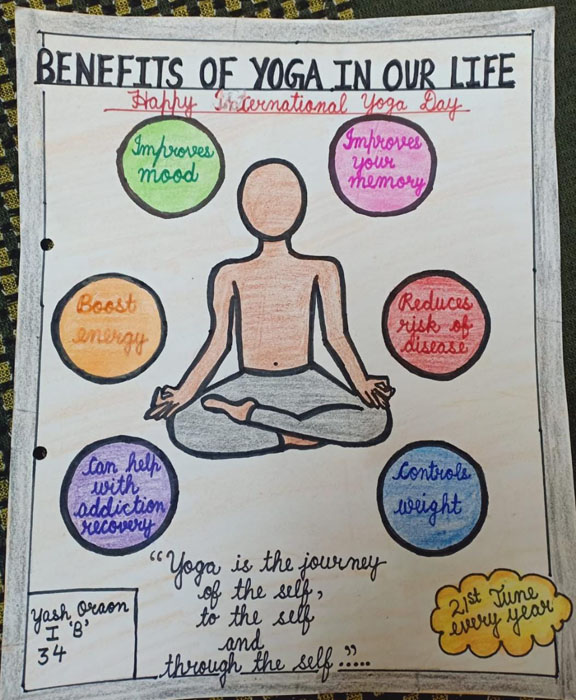 BENEFITS OF YOGA IN OUR LIFE
Happy International Yoga Day
Improves
mood
Improves
your
memory
Boost
energy
Reduces
risk of
disease
Can help
with
addiction
recovery
Controls
weight
"Yoga is the journey
of the self,
to the self
and
through the self....."
Yash Oraon
I 'B'
34
21st June
every year